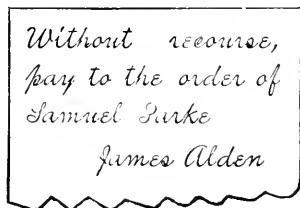 Without recourse,
pay to the order of
Samuel Parke
James Alden